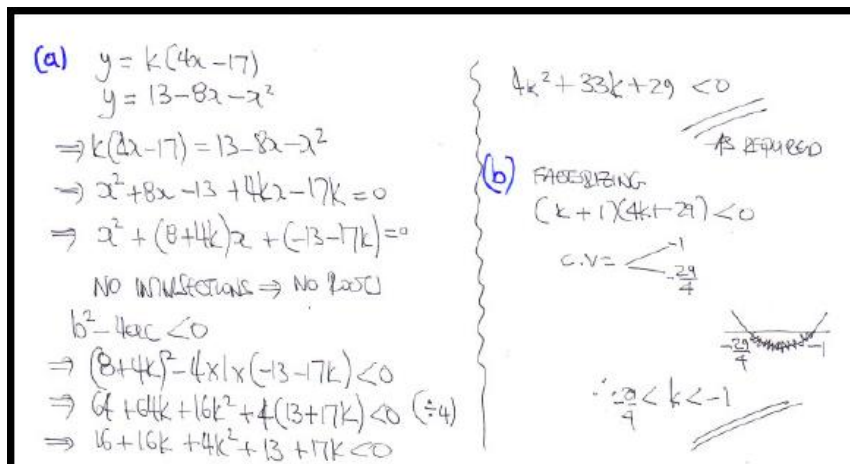 (a) y = k(4x-17)
y = 13-8x-x²
⇒ k(4x-17) = 13-8x-x²
⇒ x²+8x-13+4kx-17k=0
⇒ x²+(8+4k)x+(-13-17k)=0
NO INTERSECTIONS ⇒ NO ROOTS
b²-4ac<0
⇒ (8+4k)²-4×1×(-13-17k)<0
⇒ 64+64k+16k²+4(13+17k)<0 (÷4)
⇒ 16+16k+4k²+13+17k<0
4k²+33k+29<0
AS REQUIRED
(b) FACTORIZING
(k+1)(4k+29)<0
C.V = -1
-29/4
-29/4 -1
∴ -29/4 < k < -1